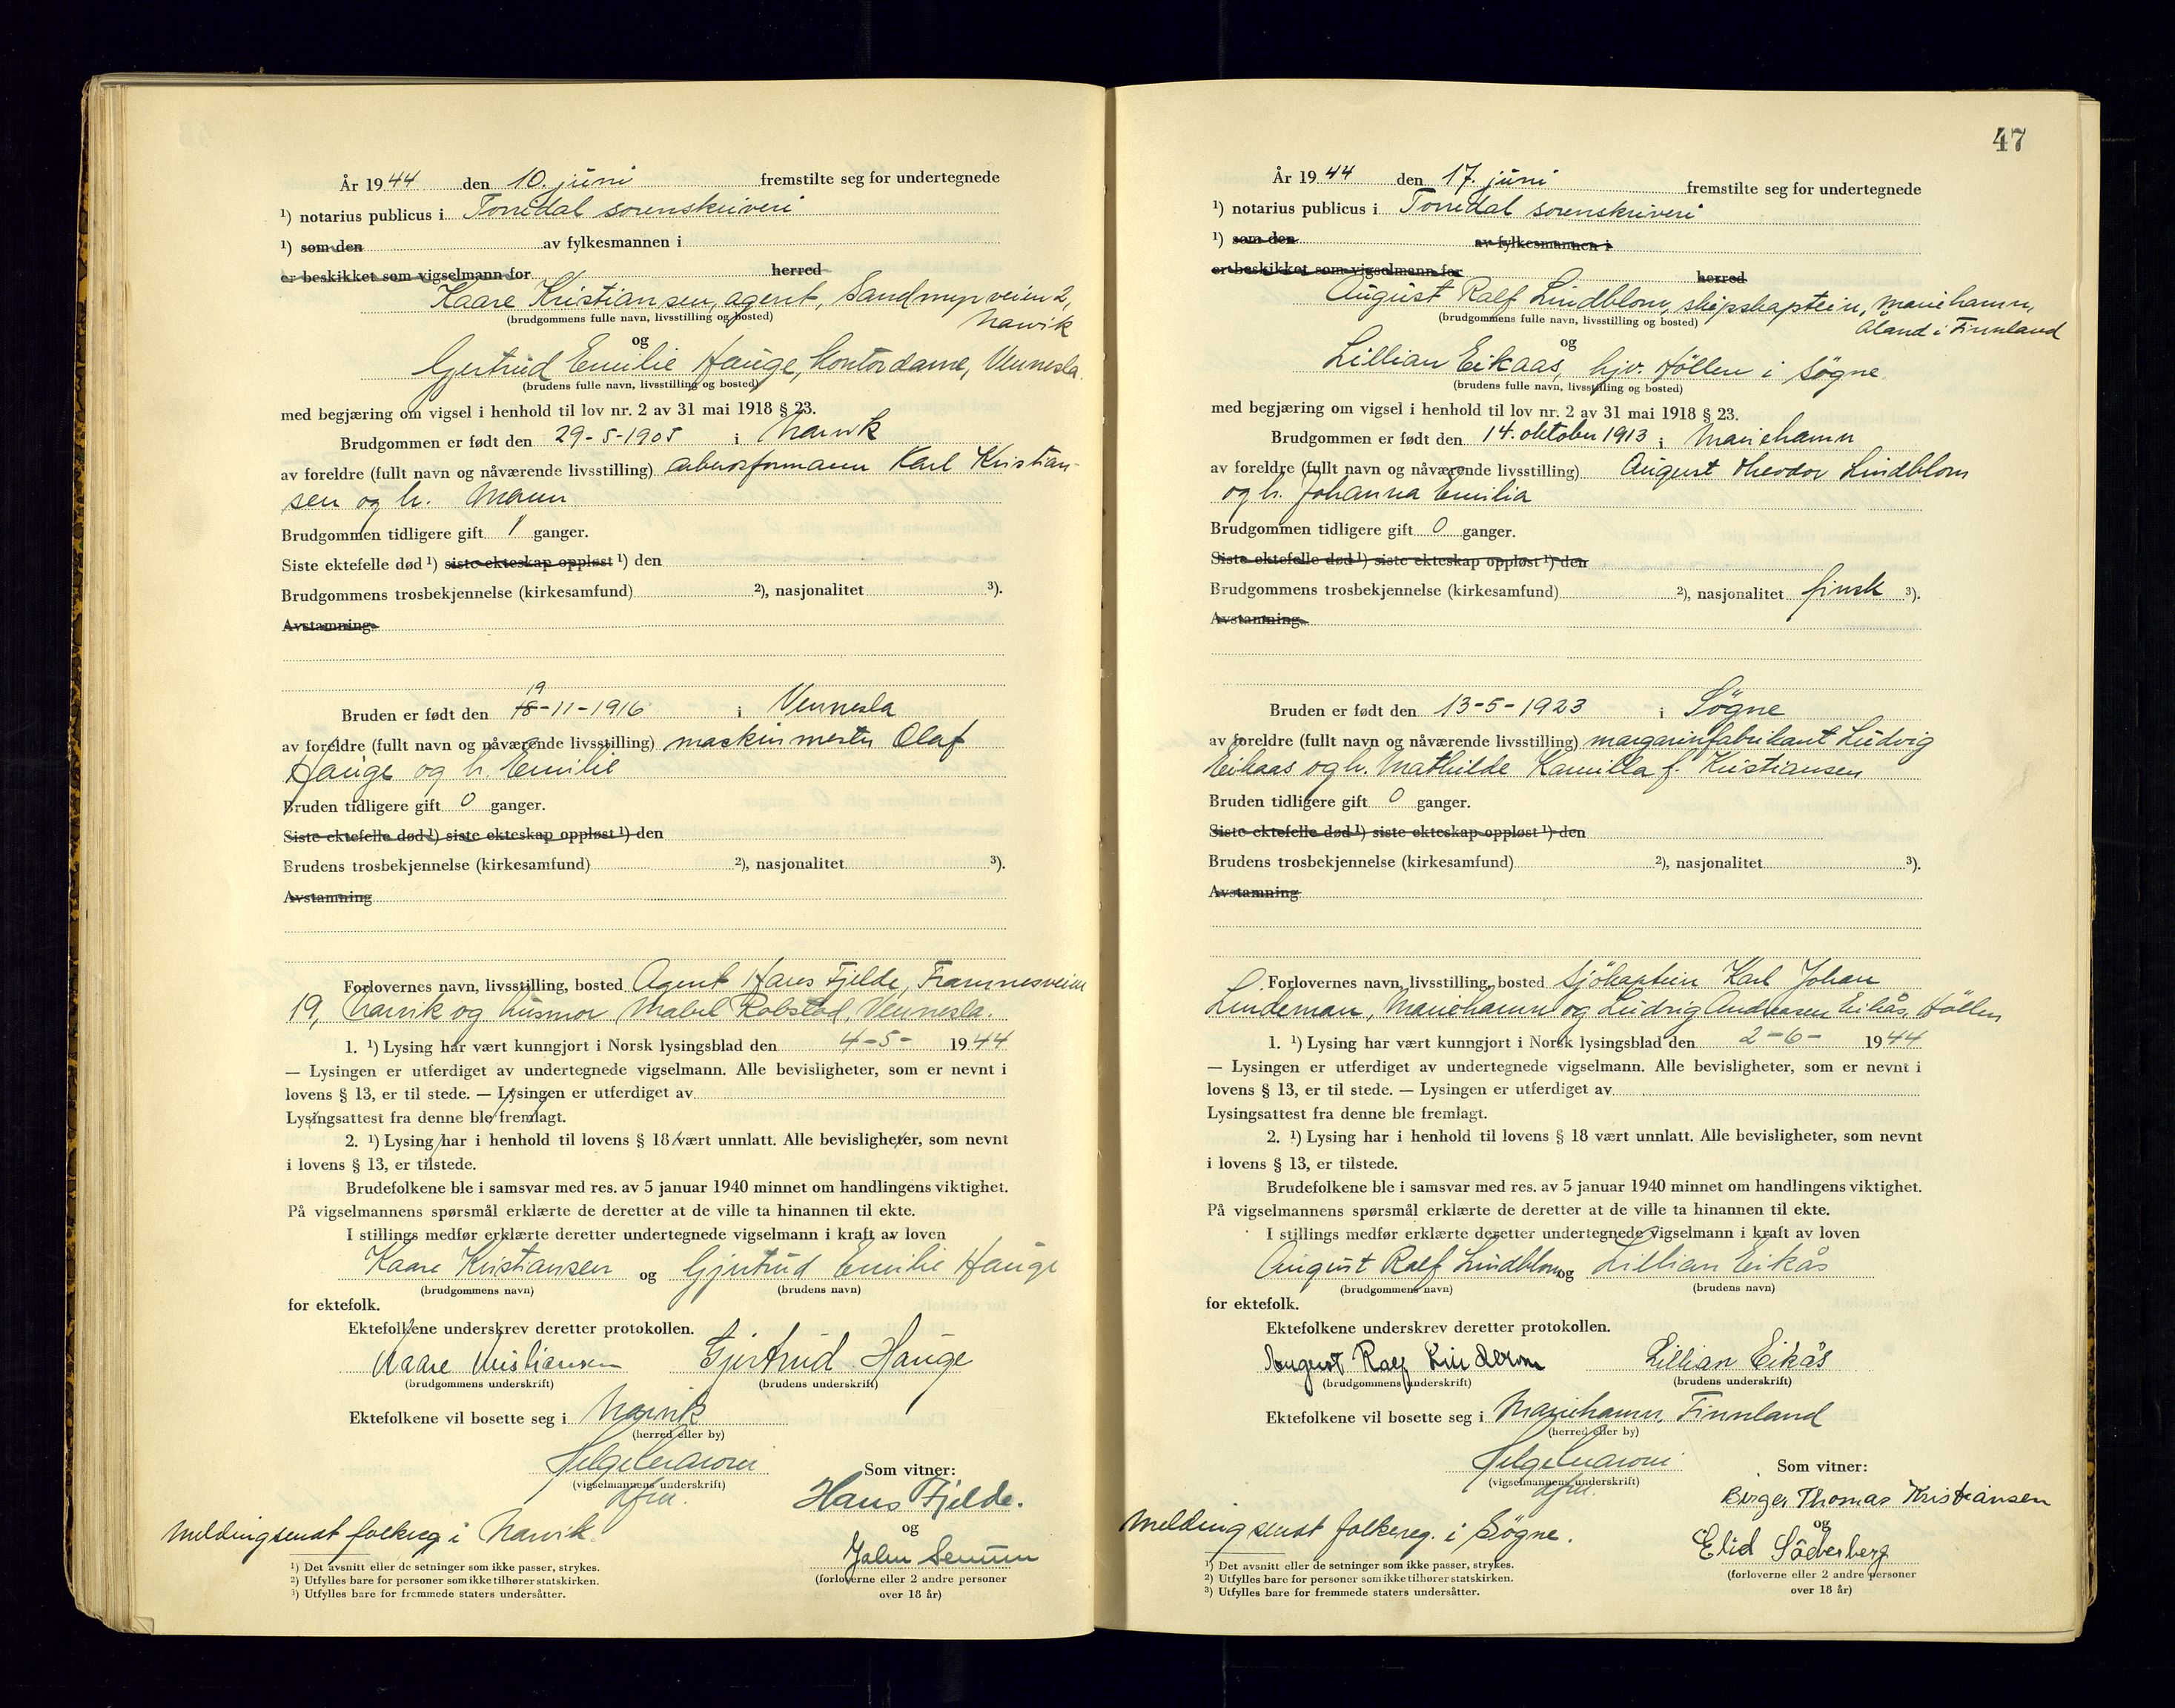 År 1944 den 10. juni fremstilte seg for undertegnede
¹) notarius publicus i Torridal sorenskriveri
¹) som den av fylkesmannen i
er beskikket som vigselmann for herred
Kaare Kristiansen, agent, Sandmyrveien 2,
(brudgommens fulle navn, livsstilling og bosted)
Narvik
og
Gjertrud Emilie Hauge, kontordame, Vennesla.
(brudens fulle navn, livsstilling og bosted)
med begjæring om vigsel i henhold til lov nr. 2 av 31 mai 1918 § 23.
Brudgommen er født den 29-5-1905 i Narvik
av foreldre (fullt navn og nåværende livsstilling) Karl Kristian-
sen og h.
Brudgommen tidligere gift 1 ganger.
Siste ektefelle død ¹) siste ekteskap oppløst ¹) den
Brudgommens trosbekjennelse (kirkesamfund) ²), nasjonalitet ³).
Avstamning
19
Bruden er født den 18-11-1916 i Vennesla
av foreldre (fullt navn og nåværende livsstilling) maskinmester Olaf
Hauge og h. Emilie
Bruden tidligere gift 0 ganger.
Siste ektefelle død ¹) siste ekteskap oppløst ¹) den
Brudens trosbekjennelse (kirkesamfund) ²), nasjonalitet ³).
Avstamning
Forlovernes navn, livsstilling, bosted Agent Hans Fjelde, Framnesveien
19, Narvik og husmor Mabel Robstad, Vennesla.
1. ¹) Lysing har vært kunngjort i Norsk lysingsblad den 4-5- 1944
— Lysingen er utferdiget av undertegnede vigselmann. Alle bevisligheter, som er nevnt i
lovens § 13, er til stede. — Lysingen er utferdiget av
Lysingsattest fra denne ble fremlagt.
2. ¹) Lysing har i henhold til lovens § 18 vært unnlatt. Alle bevisligheter, som nevnt
i lovens § 13, er tilstede.
Brudefolkene ble i samsvar med res. av 5 januar 1940 minnet om handlingens viktighet.
På vigselmannens spørsmål erklærte de deretter at de ville ta hinannen til ekte.
I stillings medfør erklærte deretter undertegnede vigselmann i kraft av loven
Kaare Kristiansen og Gjertrud Emilie Hauge
(brudgommens navn) (brudens navn)
for ektefolk.
Ektefolkene underskrev deretter protokollen.
Kaare Kristiansen Gjertrud Hauge
(brudgommens underskrift) (brudens underskrift)
Ektefolkene vil bosette seg i Narvik
(herred eller by)
Som vitner:
(vigselmannens underskrift)
dfm.
Hans Fjelde.
og
Melding sendt folkereg i Narvik.
(forloverne eller 2 andre personer
over 18 år)
¹) Det avsnitt eller de setninger som ikke passer, strykes.
²) Utfylles bare for personer som ikke tilhører statskirken.
³) Utfylles bare for fremmede staters undersåtter.
47
År 1944 den 17. juni fremstilte seg for undertegnede
¹) notarius publicus i Torridal sorenskriveri
¹) som den av fylkesmannen i
er beskikket som vigselmann for herred
August Ralf Lindblom, skipskaptein, Mariehamn,
(brudgommens fulle navn, livsstilling og bosted)
Åland i Finnland
og
Lillian Eikaas, hjv. Höllen i Søgne
(brudens fulle navn, livsstilling og bosted)
med begjæring om vigsel i henhold til lov nr. 2 av 31 mai 1918 § 23.
Brudgommen er født den 14. oktober 1913 i Mariehamn
av foreldre (fullt navn og nåværende livsstilling) August Theodor Lindblom
og h. Johanna Emilia
Brudgommen tidligere gift 0 ganger.
Siste ektefelle død ¹) siste ekteskap oppløst ¹) den
Brudgommens trosbekjennelse (kirkesamfund) ²), nasjonalitet finsk ³).
Avstamning
Bruden er født den 13-5-1923 i Søgne
av foreldre (fullt navn og nåværende livsstilling) margarinfabrikant Ludvig
Eikaas og h. Mathilde Kamilla f. Kristiansen
Bruden tidligere gift 0 ganger.
Siste ektefelle død ¹) siste ekteskap oppløst ¹) den
Brudens trosbekjennelse (kirkesamfund) ²), nasjonalitet ³).
Avstamning
Forlovernes navn, livsstilling, bosted Sjökaptein Karl Johan
Lindeman, Mariehamn og Ludvig Andreasen Eikås, Höllen
1. ¹) Lysing har vært kunngjort i Norsk lysingsblad den 2-6- 1944
— Lysingen er utferdiget av undertegnede vigselmann. Alle bevisligheter, som er nevnt i
lovens § 13, er til stede. — Lysingen er utferdiget av
Lysingsattest fra denne ble fremlagt.
2. ¹) Lysing har i henhold til lovens § 18 vært unnlatt. Alle bevisligheter, som nevnt
i lovens § 13, er tilstede.
Brudefolkene ble i samsvar med res. av 5 januar 1940 minnet om handlingens viktighet.
På vigselmannens spørsmål erklærte de deretter at de ville ta hinannen til ekte.
I stillings medfør erklærte deretter undertegnede vigselmann i kraft av loven
August Ralf Lindblom og Lillian Eikås
(brudgommens navn) (brudens navn)
for ektefolk.
Ektefolkene underskrev deretter protokollen.
August Ralf Lindblom Lillian Eikås
(brudgommens underskrift) (brudens underskrift)
Ektefolkene vil bosette seg i Mariehamn, Finnland
(herred eller by)
Som vitner:
(vigselmannens underskrift)
dfm.
Birger Thomas Kristiansen
og
Melding sendt folkereg. i Søgne.
Elid Söderberg
(forloverne eller 2 andre personer
over 18 år)
¹) Det avsnitt eller de setninger som ikke passer, strykes.
²) Utfylles bare for personer som ikke tilhører statskirken.
³) Utfylles bare for fremmede staters undersåtter.